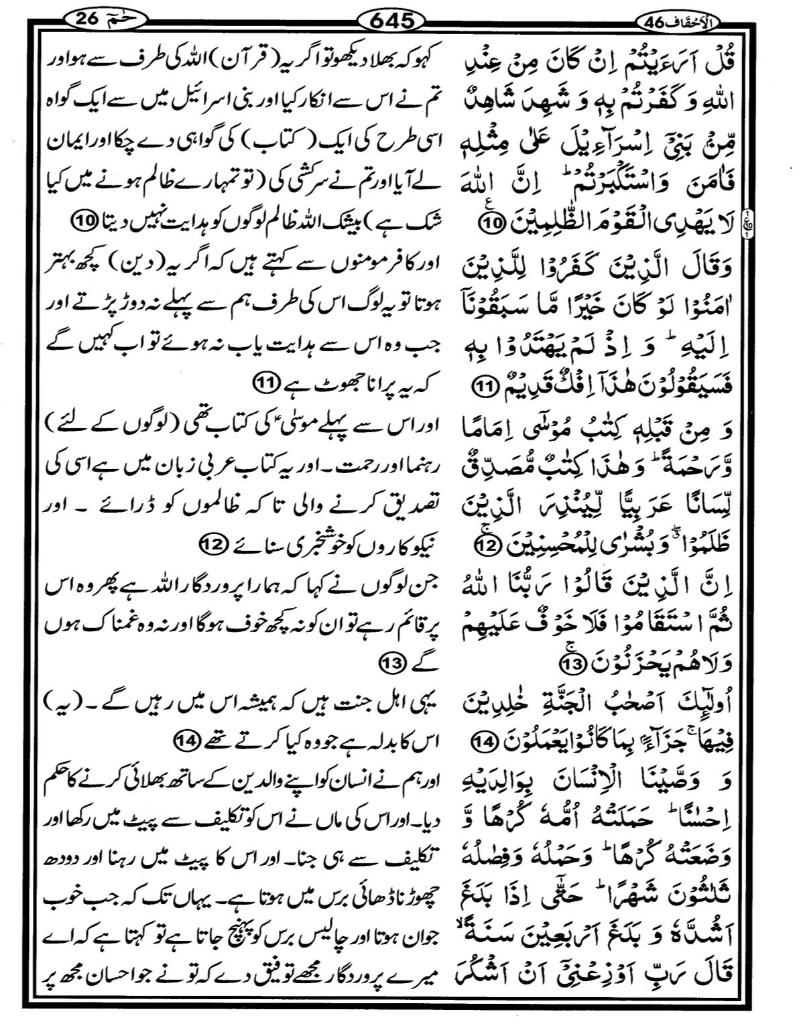 الاحقاف 46
645
حٰمٓ 26
قُلْ اَرَءَيْتُمْ اِنْ كَانَ مِنْ عِنْدِ
اللّٰهِ وَ كَفَرْتُمْ بِهٖ وَ شَهِدَ شَاهِدٌ
مِّنْۢ بَنِىْٓ اِسْرَآءِيْلَ عَلٰى مِثْلِهٖ
فَاٰمَنَ وَاسْتَكْبَرْتُمْ ؕ اِنَّ اللّٰهَ
لَا يَهْدِى الْقَوْمَ الظّٰلِمِيْنَ 10
وَقَالَ الَّذِيْنَ كَفَرُوْا لِلَّذِيْنَ
اٰمَنُوْا لَوْ كَانَ خَيْرًا مَّا سَبَقُوْنَاۤ
اِلَيْهِ ؕ وَ اِذْ لَمْ يَهْتَدُوْا بِهٖ
فَسَيَقُوْلُوْنَ هٰذَاۤ اِفْكٌ قَدِيْمٌ 11
وَ مِنْ قَبْلِهٖ كِتٰبُ مُوْسٰٓى اِمَامًا
وَّرَحْمَةً ؕ وَ هٰذَا كِتٰبٌ مُّصَدِّقٌ
لِّسَانًا عَرَبِيًّا لِّيُنْذِرَ الَّذِيْنَ
ظَلَمُوْا ۖۗ وَ بُشْرٰى لِلْمُحْسِنِيْنَ 12
اِنَّ الَّذِيْنَ قَالُوْا رَبُّنَا اللّٰهُ
ثُمَّ اسْتَقَامُوْا فَلَا خَوْفٌ عَلَيْهِمْ
وَلَا هُمْ يَحْزَنُوْنَ 13
اُولٰٓئِكَ اَصْحٰبُ الْجَنَّةِ خٰلِدِيْنَ
فِيْهَا ۚ جَزَآءًۢ بِمَا كَانُوْا يَعْمَلُوْنَ 14
وَ وَصَّيْنَا الْاِنْسَانَ بِوَالِدَيْهِ
اِحْسٰنًا ؕ حَمَلَتْهُ اُمُّهٗ كُرْهًا وَّ
وَضَعَتْهُ كُرْهًا ؕ وَحَمْلُهٗ وَفِصٰلُهٗ
ثَلٰثُوْنَ شَهْرًا ؕ حَتّٰٓى اِذَا بَلَغَ
اَشُدَّهٗ وَ بَلَغَ اَرْبَعِيْنَ سَنَةً ۙ
قَالَ رَبِّ اَوْزِعْنِىْٓ اَنْ اَشْكُرَ
کہو کہ بھلا دیکھو تو اگر یہ (قرآن) اللہ کی طرف سے ہو اور
تم نے اس سے انکار کیا اور بنی اسرائیل میں سے ایک گواہ
اسی طرح کی ایک (کتاب) کی گواہی دے چکا اور ایمان
لے آیا اور تم نے سرکشی کی (تو تمہارے ظالم ہونے میں کیا
شک ہے) بیشک اللہ ظالم لوگوں کو ہدایت نہیں دیتا 10
اور کافر مومنوں سے کہتے ہیں کہ اگر یہ (دین) کچھ بہتر
ہوتا تو یہ لوگ اس کی طرف ہم سے پہلے نہ دوڑ پڑتے اور
جب وہ اس سے ہدایت یاب نہ ہوئے تو اب کہیں گے
کہ یہ پرانا جھوٹ ہے 11
اور اس سے پہلے موسٰیؑ کی کتاب تھی (لوگوں کے لئے)
رہنما اور رحمت۔ اور یہ کتاب عربی زبان میں ہے اسی کی
تصدیق کرنے والی تا کہ ظالموں کو ڈرائے ۔ اور
نیکو کاروں کو خوشخبری سنائے 12
جن لوگوں نے کہا کہ ہمارا پروردگار اللہ ہے پھر وہ اس
پر قائم رہے تو ان کو نہ کچھ خوف ہوگا اور نہ وہ غمناک ہوں
گے 13
یہی اہل جنت ہیں کہ ہمیشہ اس میں رہیں گے ۔ (یہ)
اس کا بدلہ ہے جو وہ کیا کرتے تھے 14
اور ہم نے انسان کو اپنے والدین کے ساتھ بھلائی کرنے کا حکم
دیا۔ اور اس کی ماں نے اس کو تکلیف سے پیٹ میں رکھا اور
تکلیف سے ہی جنا۔ اور اس کا پیٹ میں رہنا اور دودھ
چھوڑنا ڈھائی برس میں ہوتا ہے۔ یہاں تک کہ جب خوب
جوان ہوتا اور چالیس برس کو پہنچ جاتا ہے تو کہتا ہے کہ اے
میرے پروردگار مجھے توفیق دے کہ تو نے جو احسان مجھ پر